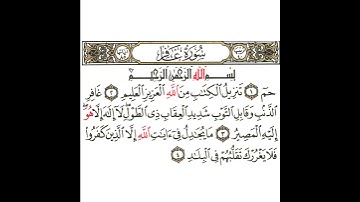 سورة غافر
بسم الله الرحمن الرحيم
حم ١ تنزيل الكتب من الله العزيز العليم ٢ غافر
الذنب وقابل التوب شديد العقاب ذى الطول لا إله إلا هو
إليه المصير ٣ ما يجدل فى ءايت الله إلا الذين كفروا
فلا يغررك تقلبهم فى البلد ٤